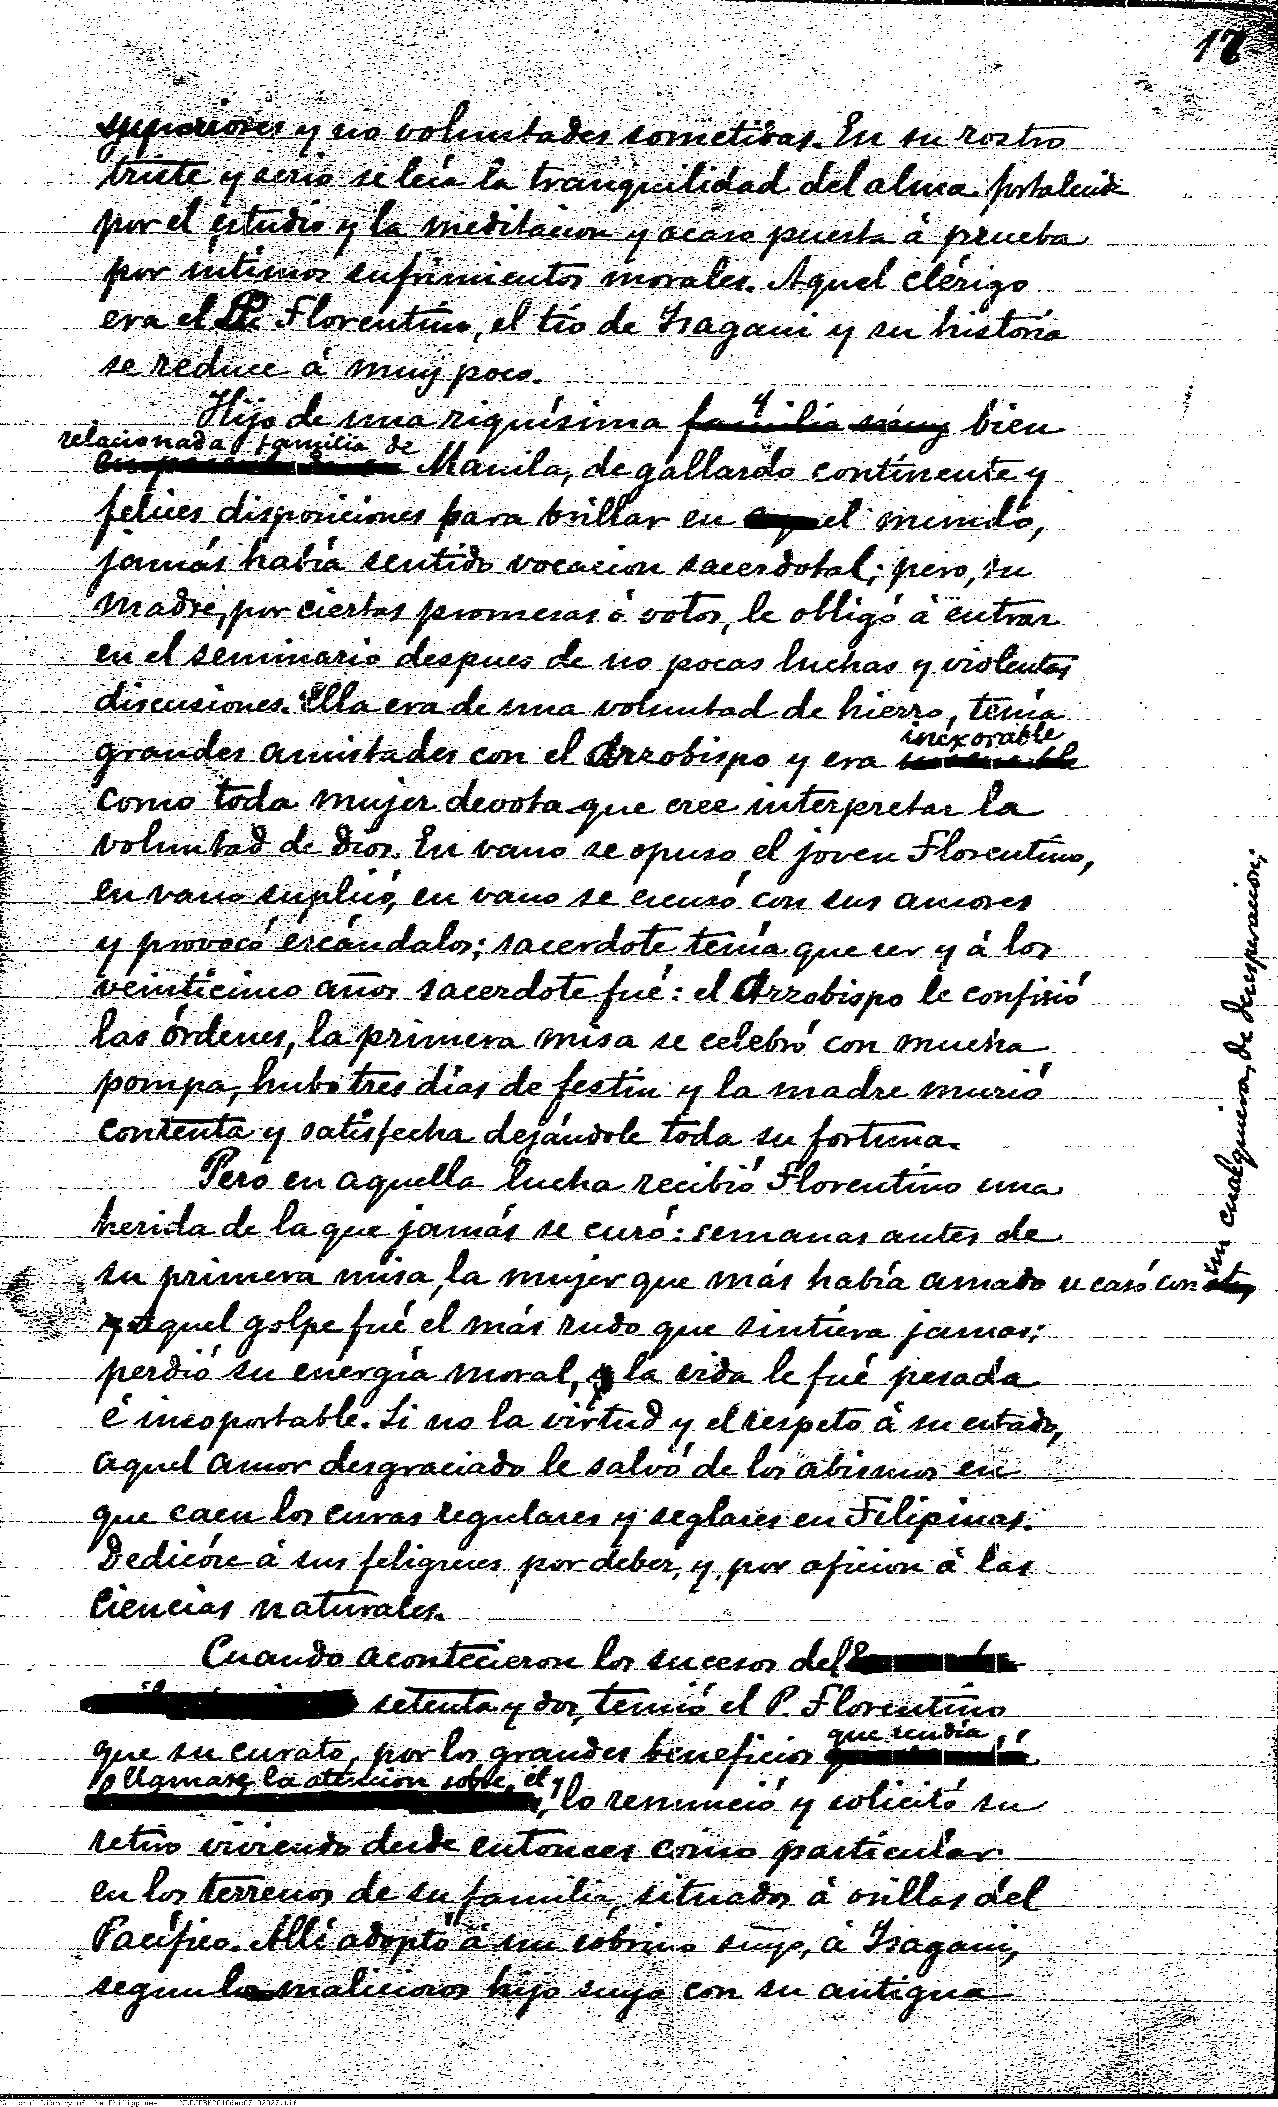 17
superiores y no voluntades sometidas. En su rostro
triste y serio se leía la tranquilidad del alma fortalecida
por el estudio y la meditacion y acaso puesta á prueba
por íntimos sufrimientos morales. Aquel clérigo
era el P. Florentino, el tío de Isagani y su historia
se reduce á muy poco.
Hijo de una riquísima familia muy y bien
relacionada familia de
Manila, de gallardo continente y
felices disposiciones para brillar en el mundo,
jamás había sentido vocacion sacerdotal; pero, su
madre, por ciertas promesas ó votos, le obligó á entrar
en el seminario despues de no pocas luchas y violentas
discusiones. Ella era de una voluntad de hierro, tenía
inexorable
grandes amistades con el Arzobispo y era
como toda mujer devota que cree interpretar la
voluntad de Dios. En vano se opuso el joven Florentino,
en vano suplicó, en vano se escusó con sus amores
y provocó escándalos; sacerdote tenía que ser y á los
veinticinco años sacerdote fué: el Arzobispo le confirió
las órdenes, la primera misa se celebró con mucha
pompa, hubo tres días de festin y la madre murió
contenta y satisfecha dejándole toda su fortuna.
Pero en aquella lucha recibió Florentino una
herida de la que jamás se curó: semanas antes de
su primera misa, la mujer que más había amado se casó con
un cualquiera, de desesperacion;
aquel golpe fué el más rudo que sintiera jamas;
perdió su energía moral, la vida le fué pesada
é insoportable. Si no la virtud y el respeto á su estado,
aquel amor desgraciado le salvó de los abismos en
que caen los curas regulares y seglares en Filipinas.
Dedicóse á sus feligreses por deber, y por aficion á las
ciencias naturales.
Cuando acontecieron los sucesos del
setenta y dos, temió el P. Florentino
que su curato, por los grandes beneficios que rendía,
llamase la atencion sobre él y
lo renunció y solicitó su
retiro viviendo desde entonces como particular
en los terrenos de su familia, situados á orillas del
Pacífico. Allí adoptó á un sobrino suyo, á Isagani,
segun los maliciosos hijo suyo con su antigua